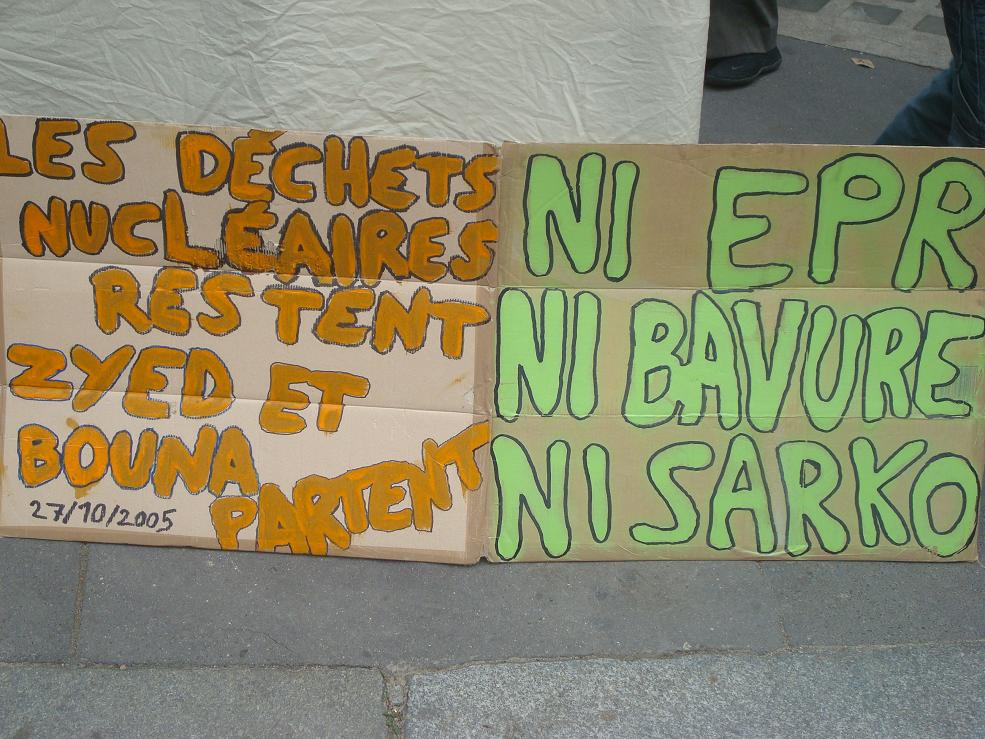 LES DÉCHETS
NUCLÉAIRES
RESTENT
ZYED ET
BOUNA
PARTENT
27/10/2005
NI EPR
NI BAVURE
NI SARKO